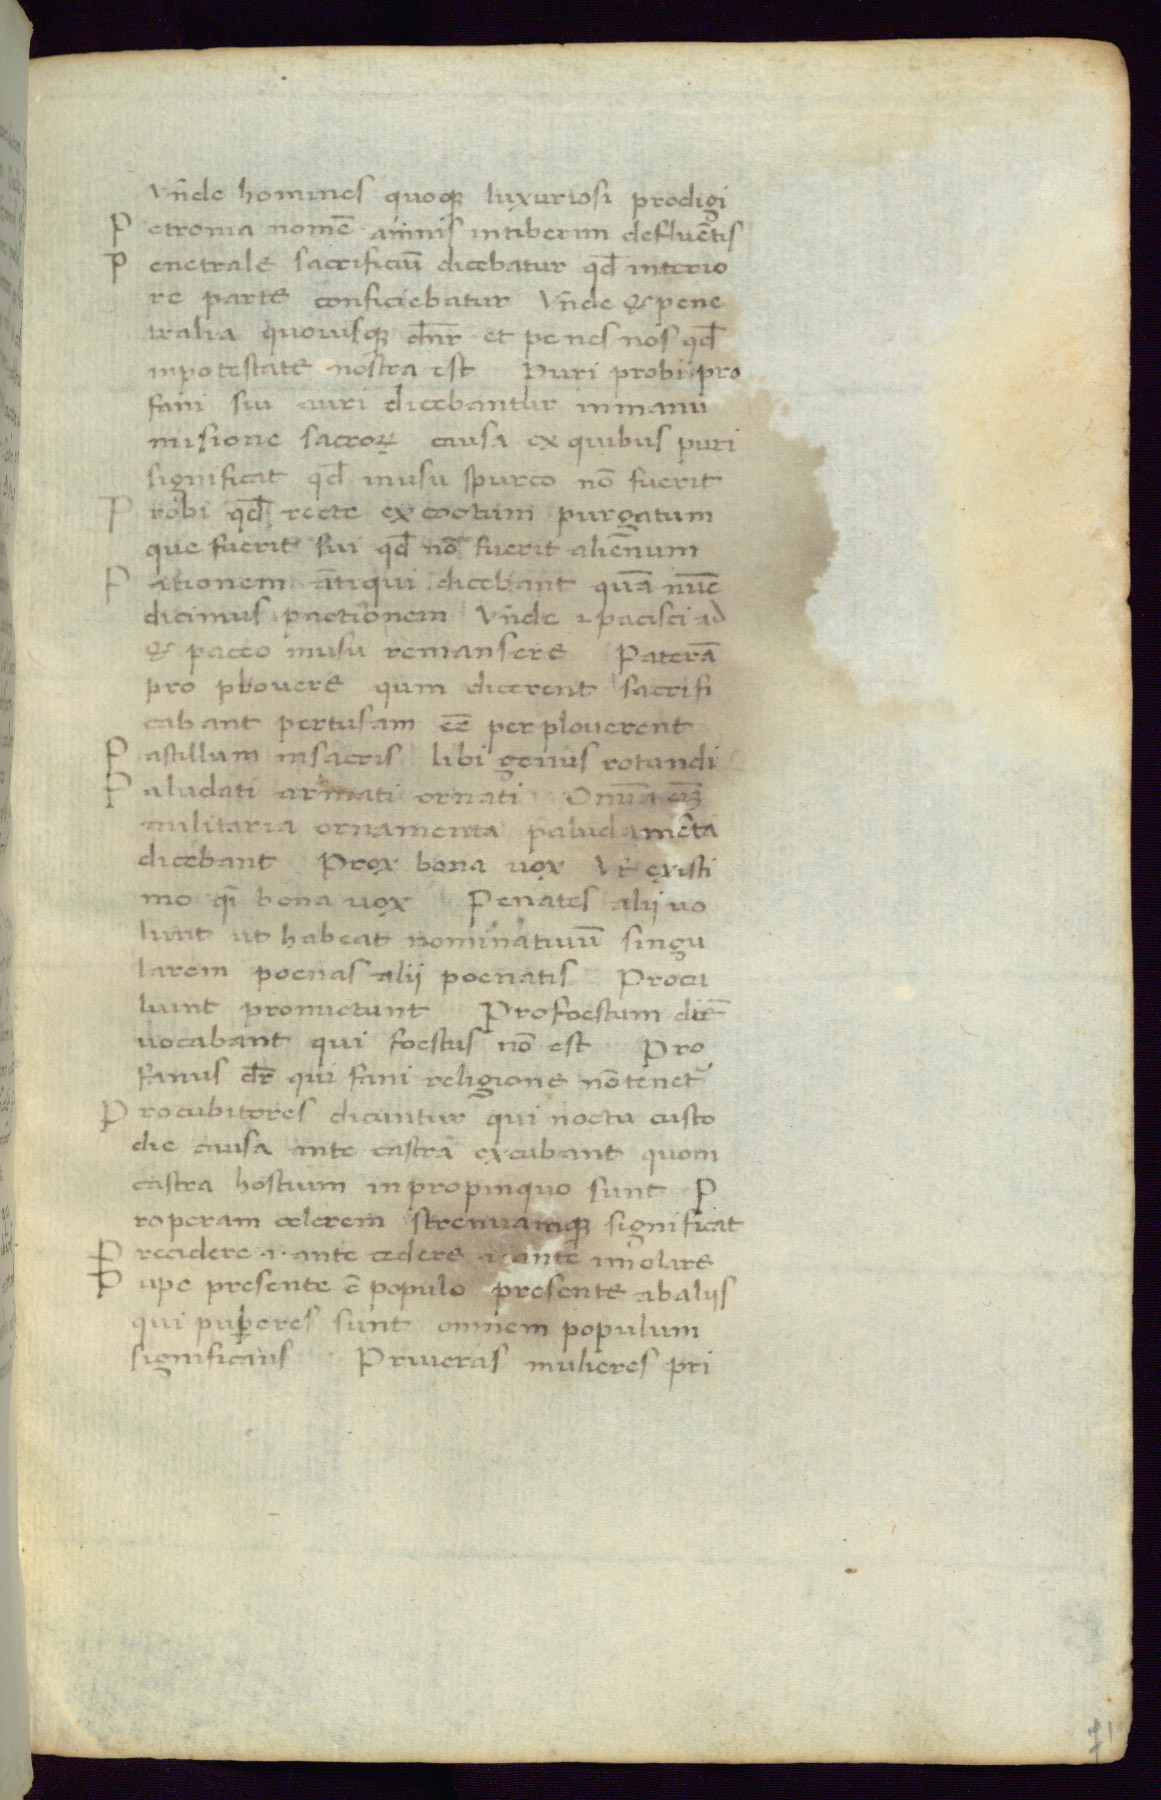 Vn̄de homines quoqꝫ luxuriosi prodigi
Petronia nomē amnis intiberim defluētis
Penetrale sacrificiū dicebatur qd̄ interio
re parte conficiebatur Vn̄de & pene
tralia quoiusqꝫ dn̄r et penes nos qd̄
inpotestate nostra est Puri probi pro
fani sui auri dicebantur inmanu
misione sacroꝝ causa ex quibus puri
significat qd̄ inusu spurco nō fuerit
Probi qd̄ recte excoctum purgatum
que fuerit sui qd̄ nō fuerit alienum
Pationem ātiqui dicebant quā nūc
dicimus pactionem Vn̄de & pacisci ad
& paceo inusu remansere Paterā
pro plouere qum dicerent sacrifi
cabant pertusam eē perplouerent
Pastillum insacris libi genus rotundi
Paludati armati ornati Omīa eī
militaria ornamenta paludamēta
dicebant Prox bona uox Vt existi
mo qī bona uox Penates alij uo
lunt ut habeat nominatiuū singu
larem poenas alij poenatis Procu
liunt promictunt Profoestum diē
uocabant qui foestus nō est Pro
fanus dr̄ qui fani religione nōtenet᷑
Procubitores dicuntur qui noctu custo
die causa ante castra excubant quom
castra hostium inpropinquo sunt P
roperam celerem strenuamqꝫ significat
Precidere .i. ante cedere .i. ante īmolare
Pupe presente ē populo presente abalijs
qui puꝑeres sunt omnem populum
significans Priueras mulieres pri
71